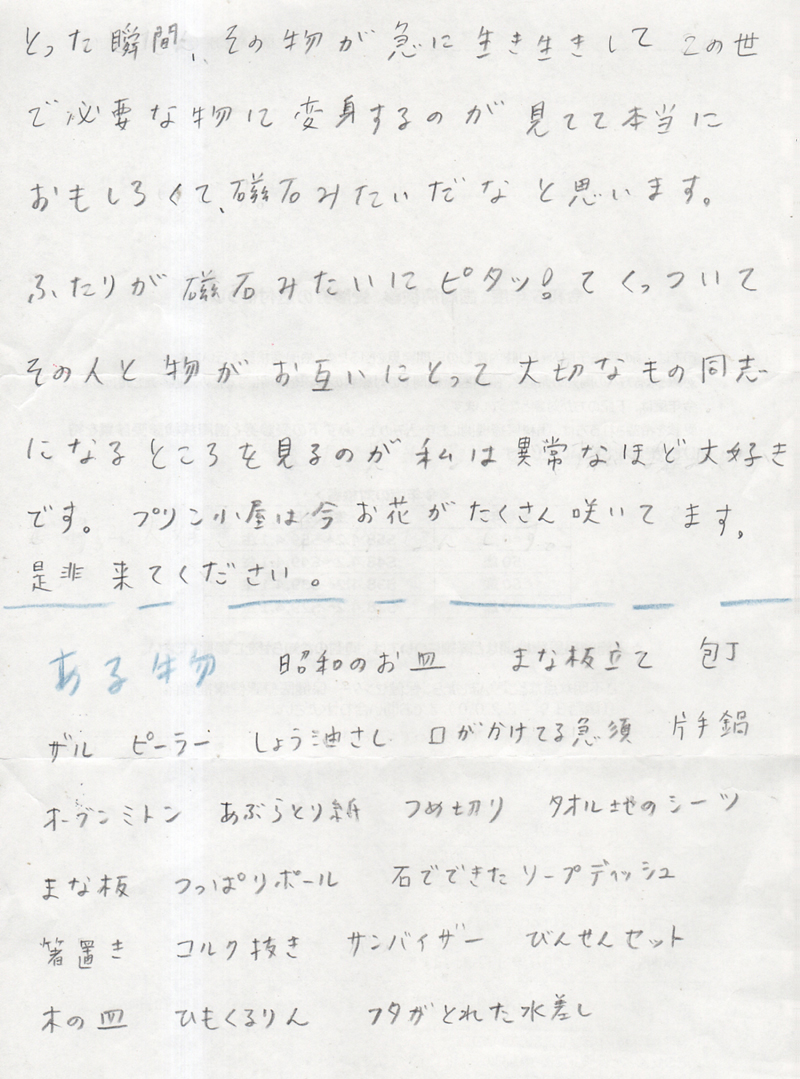 とった瞬間、その物が急に生き生きしてこの世
で必要な物に変身するのが見てて本当に
おもしろくて、磁石みたいだなと思います。
ふたりが磁石みたいにピタッ!てくっついて
その人と物がお互いにとって大切なもの同志
になるところを見るのが私は異常なほど大好き
です。プリン小屋は今お花がたくさん咲いてます。
是非来てください。
ある生物 昭和のお皿 まな板立て 包丁
ザル ピーラー しょう油さし 口がかけてる急須 片手鍋
オーブンミトン あぶらとり紙 つめ切り タオル地のシーツ
まな板 つっぱりポール 石でできたソープディッシュ
箸置き コルク抜き サンバイザー びんせんセット
木の皿 ひもくるりん フタがとれた水差し